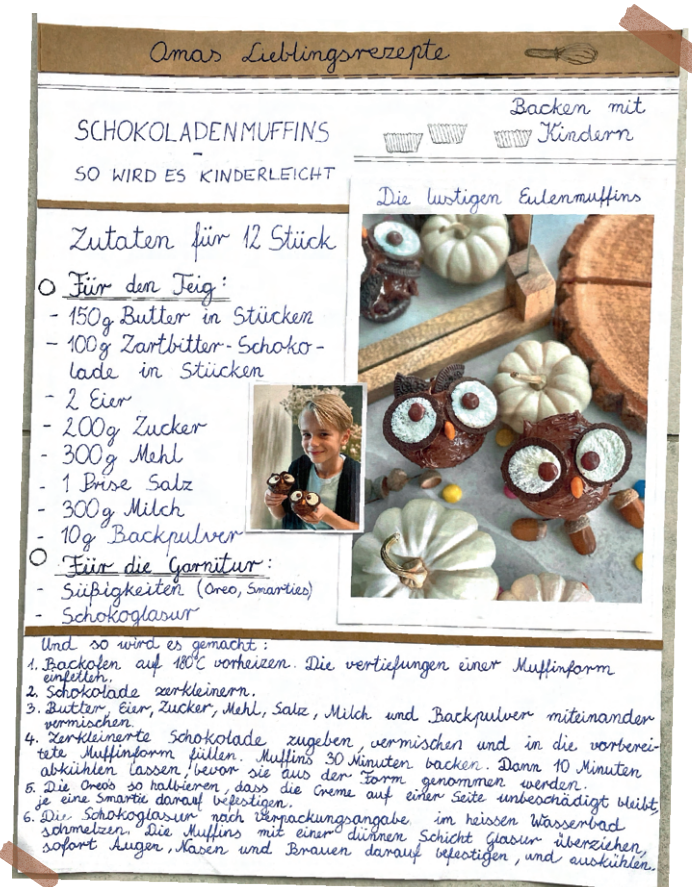 Omas Lieblingsrezepte
Backen mit
Kindern
SCHOKOLADENMUFFINS
-
SO WIRD ES KINDERLEICHT
Die lustigen Eulenmuffins
Zutaten für 12 Stück
Für den Teig:
- 150g Butter in Stücken
- 100g Zartbitter-Schoko-
lade in Stücken
- 2 Eier
- 200g Zucker
- 300g Mehl
- 1 Prise Salz
- 300g Milch
- 10g Backpulver
Für die Garnitur:
- Süßigkeiten (Oreo, Smarties)
- Schokoglasur
Und so wird es gemacht:
1. Backofen auf 180°C vorheizen. Die vertiefungen einer Muffinform
einfetten.
2. Schokolade zerkleinern.
3. Butter, Eier, Zucker, Mehl, Salz, Milch und Backpulver miteinander
vermischen.
4. Zerkleinerte Schokolade zugeben, vermischen und in die vorberei-
tete Muffinform füllen. Muffins 30 Minuten backen. Dann 10 Minuten
abkühlen lassen, bevor sie aus der Form genommen werden.
5. Die Oreos so halbieren, dass die Creme auf einer Seite unbeschädigt bleibt,
je eine Smartie darauf befestigen.
6. Die Schokoglasur nach verpackungsangabe im heissen Wasserbad
schmelzen. Die Muffins mit einer dünnen Schicht Glasur überziehen,
sofort Augen, Nasen und Brauen darauf befestigen, und auskühlen.